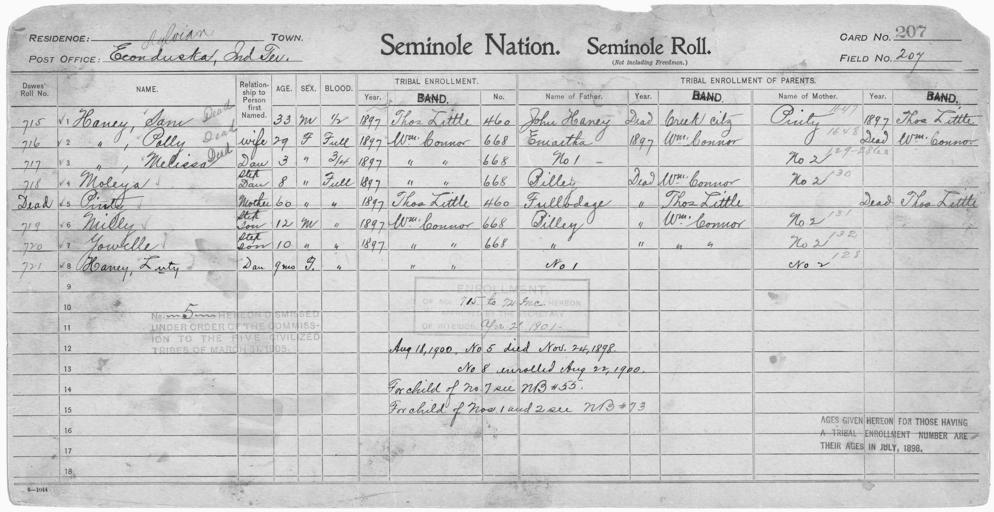 RESIDENCE: TOWN. Seminole Nation. Seminole Roll. CARD NO. 207
POST OFFICE: Econduska, Ind Ter. (Not including Freedmen.) FIELD NO. 207
Dawes' Roll No. NAME. Relationship to Person first Named. AGE. SEX. BLOOD. TRIBAL ENROLLMENT. TRIBAL ENROLLMENT OF PARENTS.
Year. BAND. No. Name of Father. Year. BAND. Name of Mother. Year. BAND.
715 √ 1 Haney, Sam Dead 33 M 1/2 1897 Thos Little 460 John Haney Dead Creek citz Pinty 1897 Thos Little
716 √ 2 " , Polly Dead wife 29 F Full 1897 Wm. Connor 668 Emartha 1897 Wm. Connor 1648 Dead Wm. Connor
717 √ 3 " , Melissa Dead Dau 3 " 3/4 1897 " " 668 No 1 – No 2
718 √ 4 Moleya Step Dau 8 " Full 1897 " " 668 Billey Dead Wm. Connor No 2 130
Dead √ 5 Pinty Mother 60 " " 1897 Thos Little 460 " Thos Little Dead Thos Little
719 √ 6 Milly Step Son 12 M " 1897 Wm. Connor 668 Billey " Wm. Connor No 2 131
720 √ 7 Step son 10 " " 1897 " " 668 " " " " No 2 132
721 √ 8 Haney, Dau 9mo F. " " " No 1 No 2 128
9
ENROLLMENT
10 OF NOS. 715 to 721 Inc. HEREON
No. 5 HEREON DISMISSED
UNDER ORDER OF THE COMMISS-
11 OF INTERIOR Apr 2 1901
ION TO THE FIVE CIVILIZED
TRIBES OF MARCH 31, 1905.
12 Aug 18, 1900. No 5 died Nov. 24, 1898.
13 No 8 enrolled Aug 22, 1900.
14 For child of No. 7 see NB #55.
15 For child of Nos. 1 and 2 see NB #73
AGES GIVEN HEREON FOR THOSE HAVING
16 A TRIBAL ENROLLMENT NUMBER ARE
THEIR AGES IN JULY, 1898.
17
18
6—1044